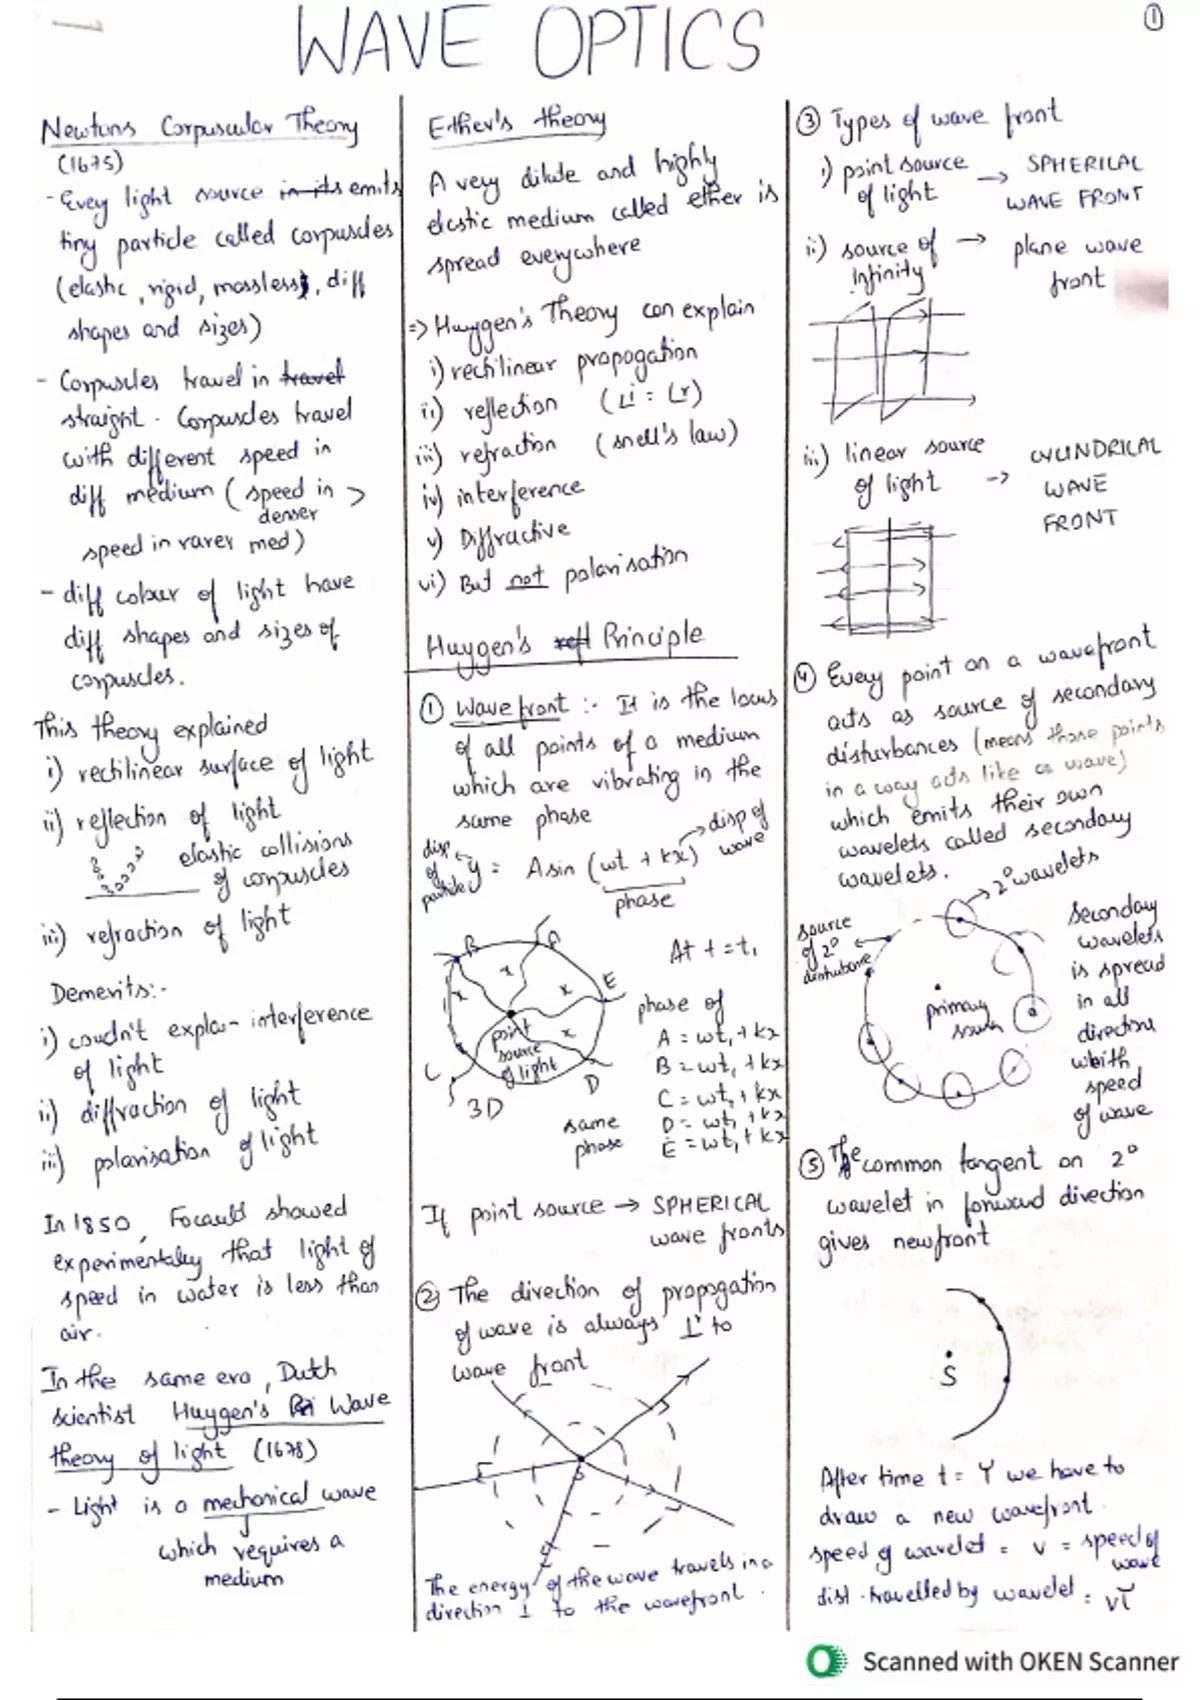 WAVE OPTICS
1
Newtons Corpuscular Theory
(1675)
- Evey light source in its emits
tiny particle called corpuscles
(elastic, rigid, massless, diff
shapes and sizes)
- Corpuscles travel in travel
straight. Corpuscles travel
with different speed in
diff medium (speed in >
denser
speed in rarer med)
- diff colour of light have
diff shapes and sizes of
corpuscles.
This theory explained
i) rectilinear surface of light
ii) reflection of light
elastic collisions
of corpuscles
iii) refraction of light
Demerits:-
i) coudn't explain interference
of light
ii) diffraction of light
iii) polarisation of light
In 1850, Focault showed
experimentally that light of
speed in water is less than
air.
In the same era, Dutch
scientist Huygen's Wave
theory of light (1678)
- Light is a mechanical wave
which requires a
medium
Ether's theory
A very dilute and highly
elastic medium called ether is
spread everywhere
=> Huygen's Theory can explain
i) rectilinear propogation
ii) reflection (∠i = ∠r)
iii) refraction (snell's law)
iv) interference
v) Diffractive
vi) But not polarisation
Huygen's Principle
① Wavefront :- It is the locus
of all points of a medium
which are vibrating in the
same phase
disp of particle ← y = A sin (wt + kx) → disp of wave
phase
B A E C D
x x x x
point
source
of light
3D
At t = t₁
phase of
A = wt₁ + kx
B = wt₁ + kx
C = wt₁ + kx
D = wt₁ + kx
E = wt₁ + kx
same
phase
If point source → SPHERICAL
wave fronts
② The direction of propogation
of wave is always ⊥r to
wave front
S
The energy of the wave travels in a
direction ⊥ to the wavefront.
③ Types of wave front
i) point source → SPHERICAL
of light WAVE FRONT
ii) source of → plane wave
Infinity front
iii) linear source → CYLINDRICAL
of light WAVE
FRONT
④ Every point on a wavefront
acts as source of secondary
disturbances (means those points
in a way acts like a wave)
which emits their own
wavelets called secondary
wavelets.
2° wavelets
source
of 2°
disturbance
primary
Secondary
wavelets
is spread
in all
direction
with
speed
of wave
⑤ The common tangent on 2°
wavelet in forward direction
gives newfront
S
After time t = ϒ we have to
draw a new wavefront.
speed of wavelet = v = speed of
wave
dist. travelled by wavelet = vτ
Scanned with OKEN Scanner